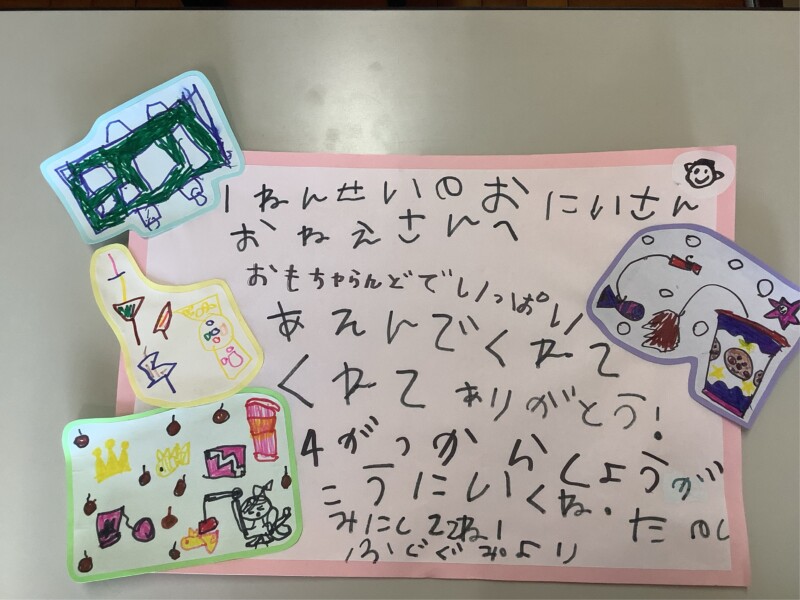 1ねんせいのおにいさん
おねえさんへ
おもちゃらんどでいっぱい
あそんでくれて
くれて ありがとう!
4がつからしょうが
こうにいくね。たのし
みにしててね!
ふじぐみより